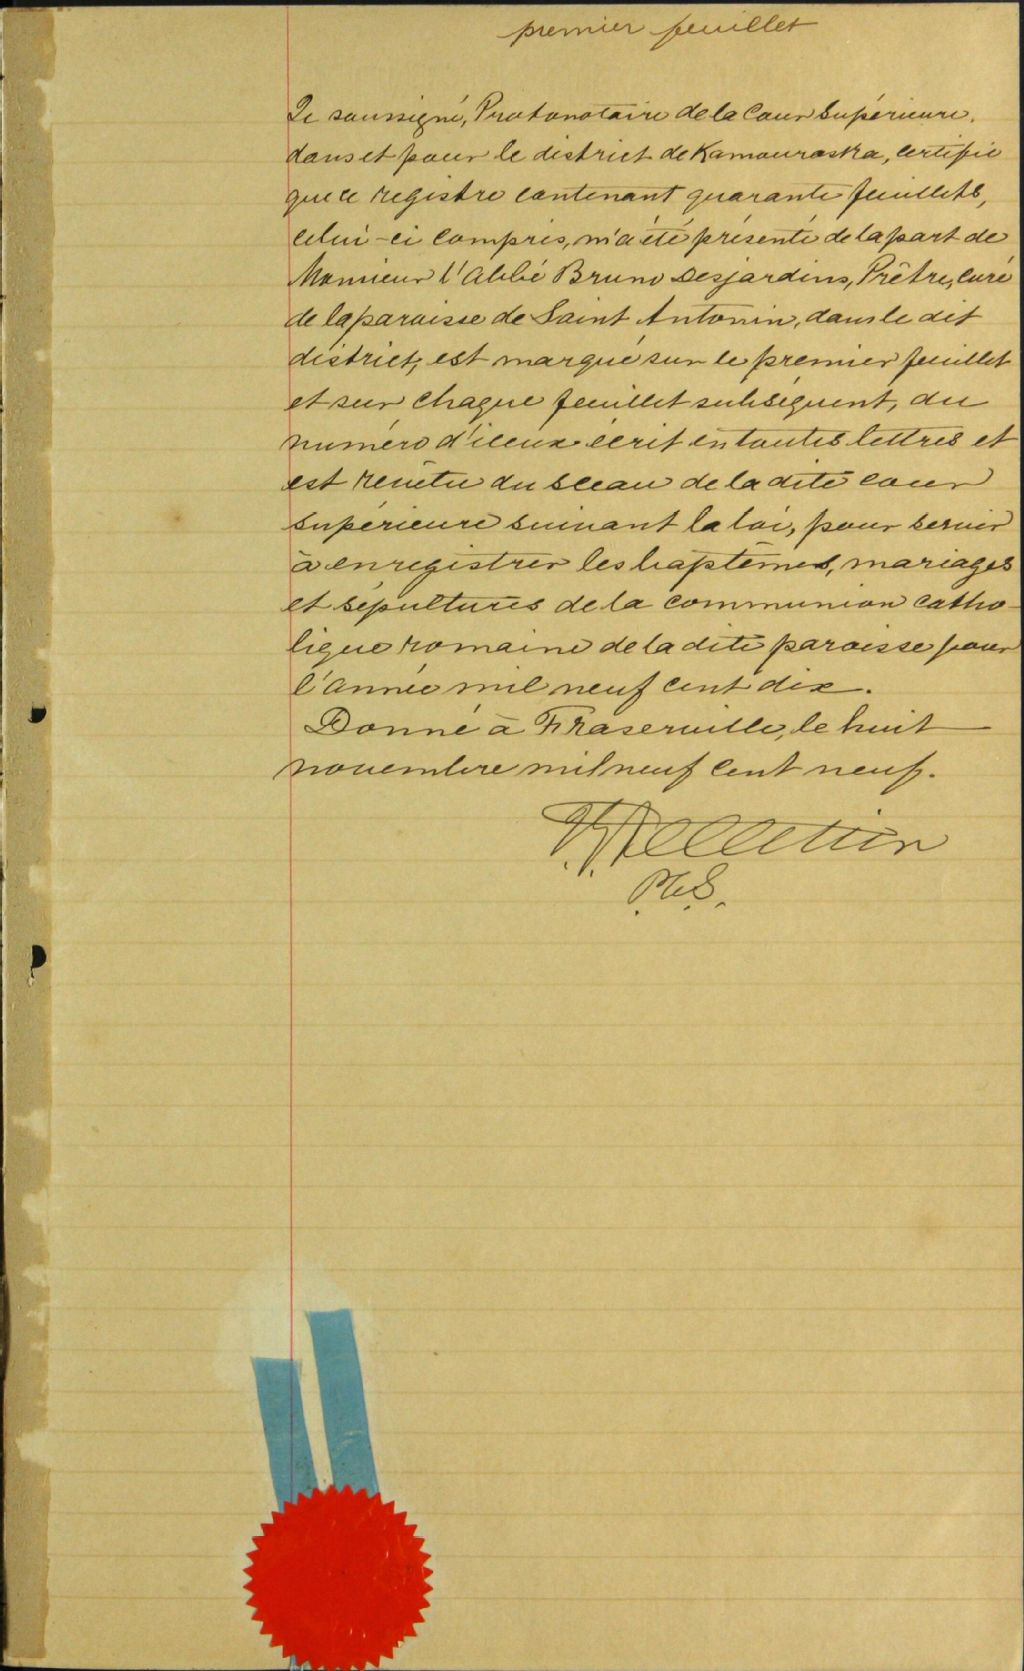 premier feuillet
Le soussigné, Protonotaire de la Cour Supérieure,
dans et pour le district de Kamouraska, certifie
que ce registre contenant quarante feuillets,
celui-ci compris, m'a été présenté de la part de
Monsieur l'Abbé Bruno Desjardins, Prêtre, curé
de la paroisse de Saint Antonin, dans le dit
district, est marqué sur le premier feuillet
et sur chaque feuillet subséquent, du
numéro d'iceux écrit en toutes lettres et
est revêtu du sceau de la dite cour
supérieure suivant la loi, pour servir
à enregistrer les baptêmes, mariages
et sépultures de la communion catho-
lique romaine de la dite paroisse pour
l'année mil neuf cent dix.
Donné à Fraserville, le huit
novembre mil neuf cent neuf.
Pelletier
P.C.S.